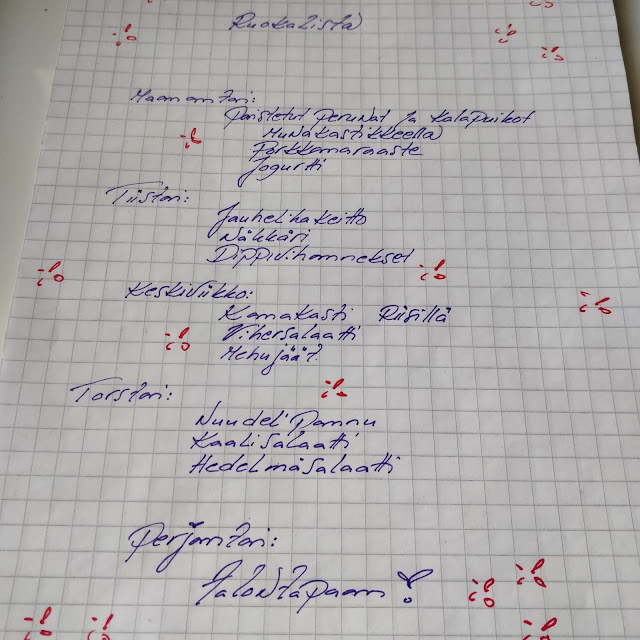 Ruokalista
Maanantai:
Paistetut perunat ja kalapuikot
Munakastikkeella
Porkkanaraaste
Jogurtti
Tiistai:
Jauhelihakeitto
Näkkäri
Dippivihannekset
Keskiviikko:
Kanakasti Riisillä
Vihersalaatti
Mehujäät
Torstai:
Nuudelipannu
Kaalisalaatti
Hedelmäsalaatti
Perjantai:
Talontapaan!